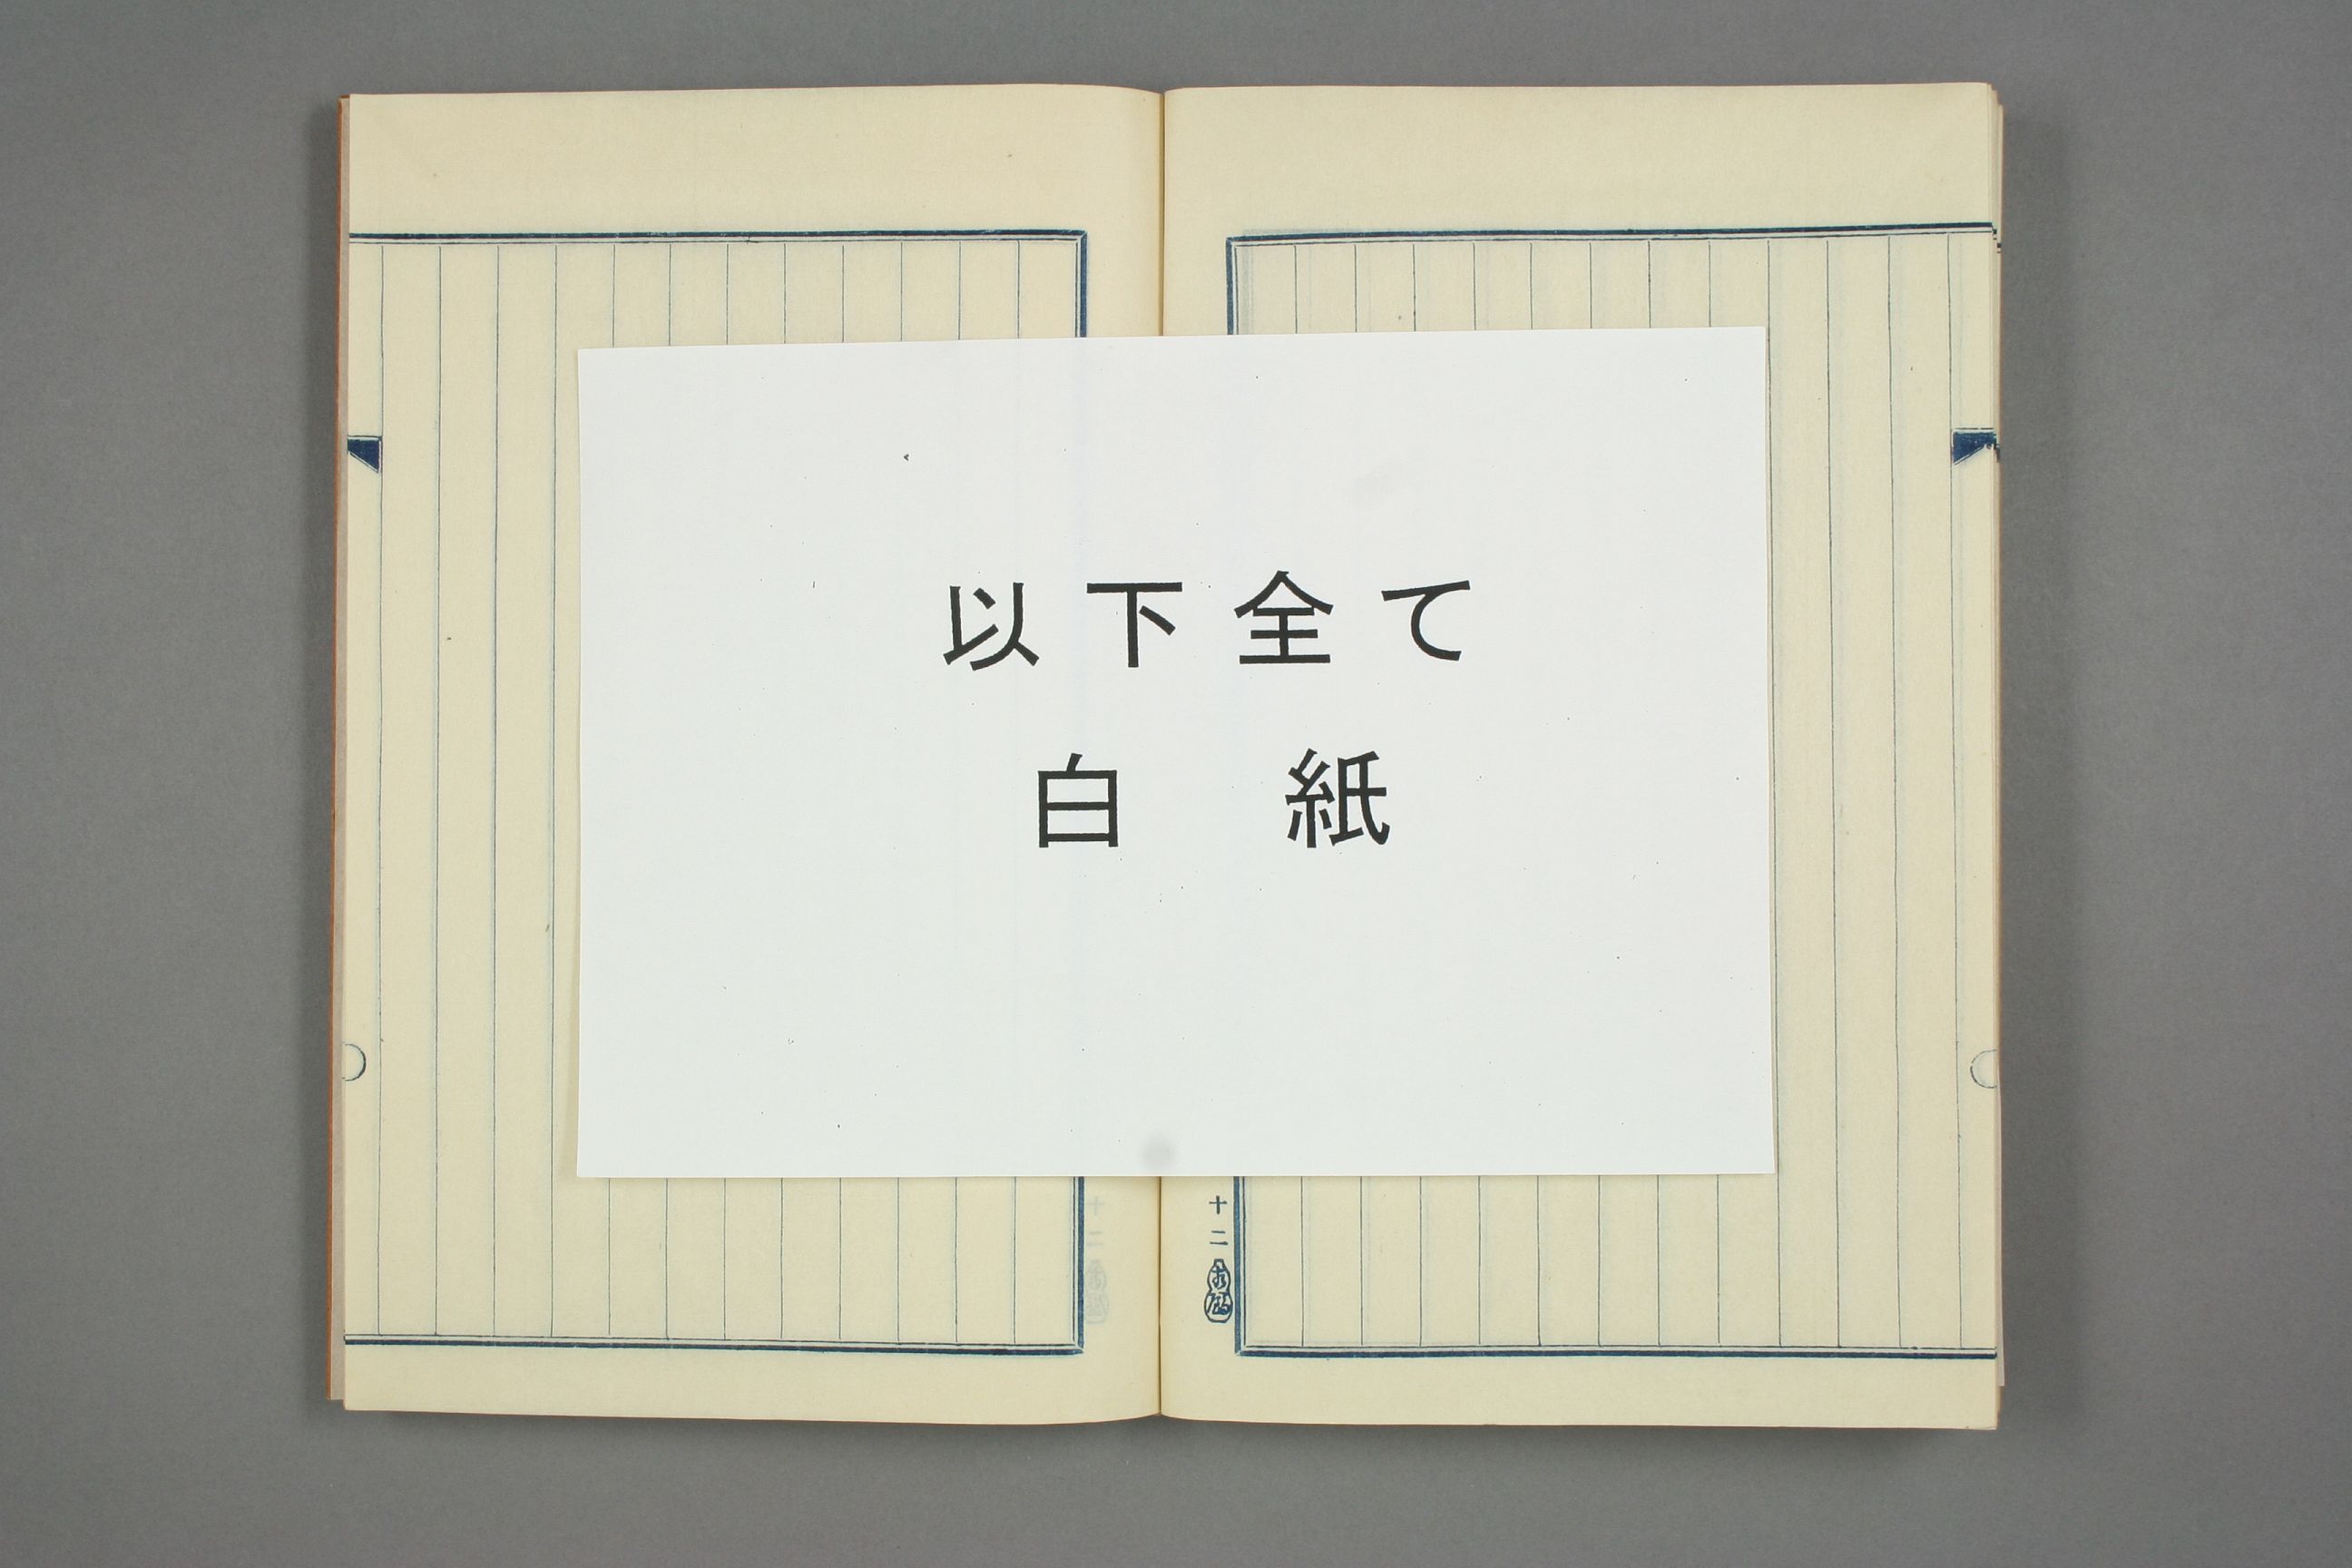 以下全て
白 紙
十二